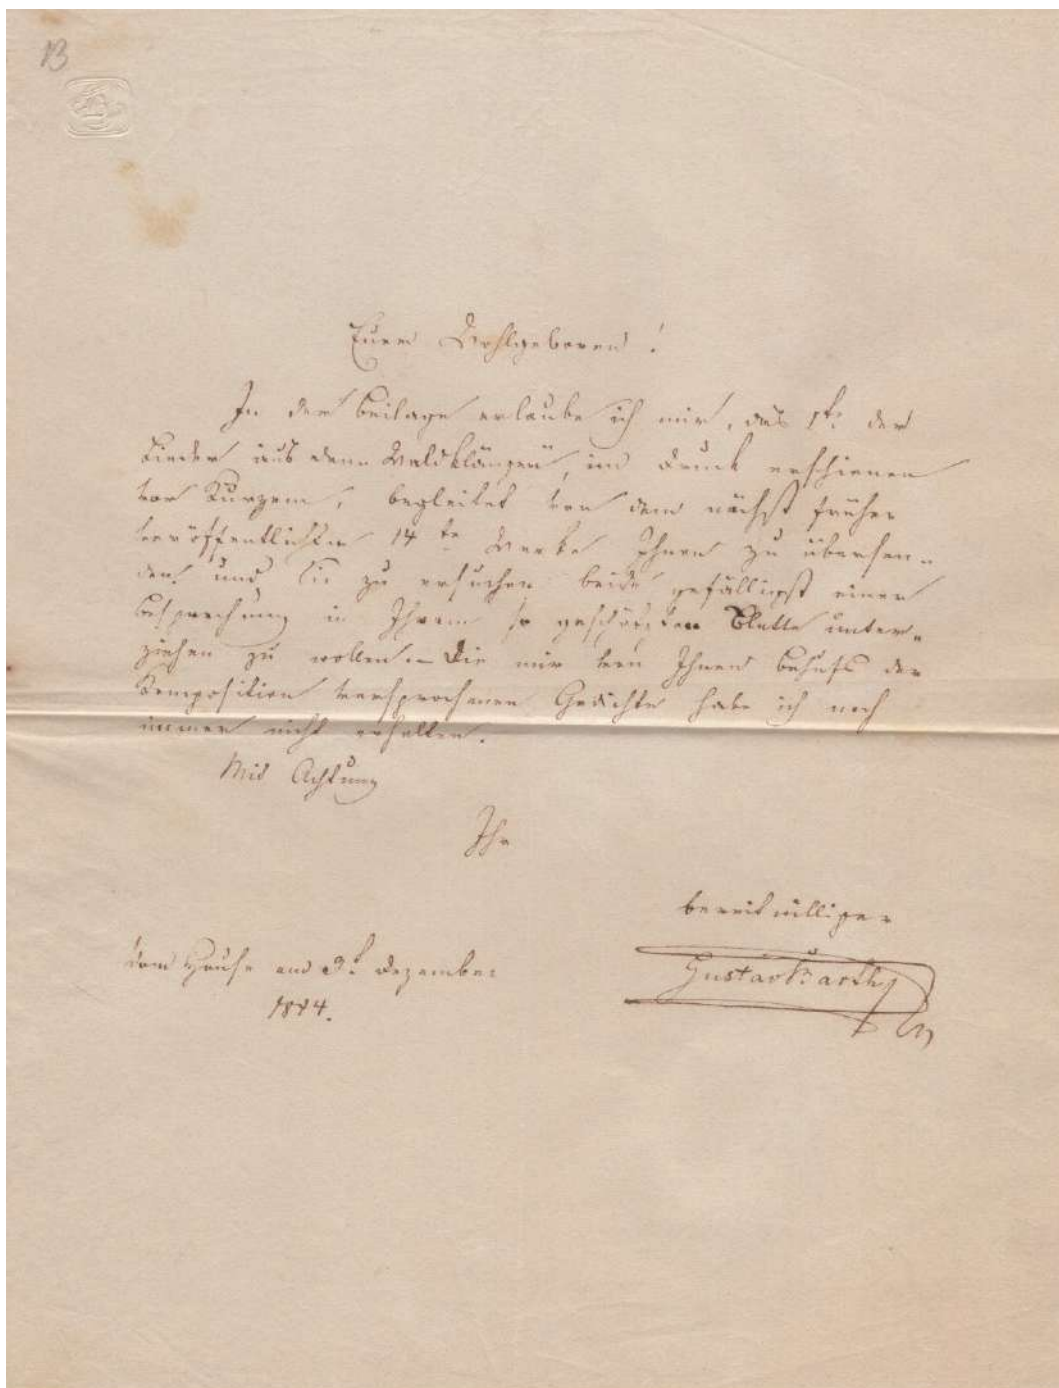 B
Euer Wohlgeboren!
In der Beilage erlaube ich mir, das 1te der
Lieder aus den „Waldklängen“, im Druck erschienen
vor Kurzem, begleitet von dem nächst früher
veröffentlichten 14te Werke Ihnen zu übersen-
den und Sie zu ersuchen beide gefälligst einer
Besprechung in Ihrem so geschätzten Blatte unter-
ziehen zu wollen. – Die mir von Ihnen behufs der
Komposition versprochenen Gedichte habe ich noch
immer nicht erhalten.
Mit Achtung
Ihr
bereitwilliger
Gustav Barth
Vom Hause am 3t Dezember
1844.